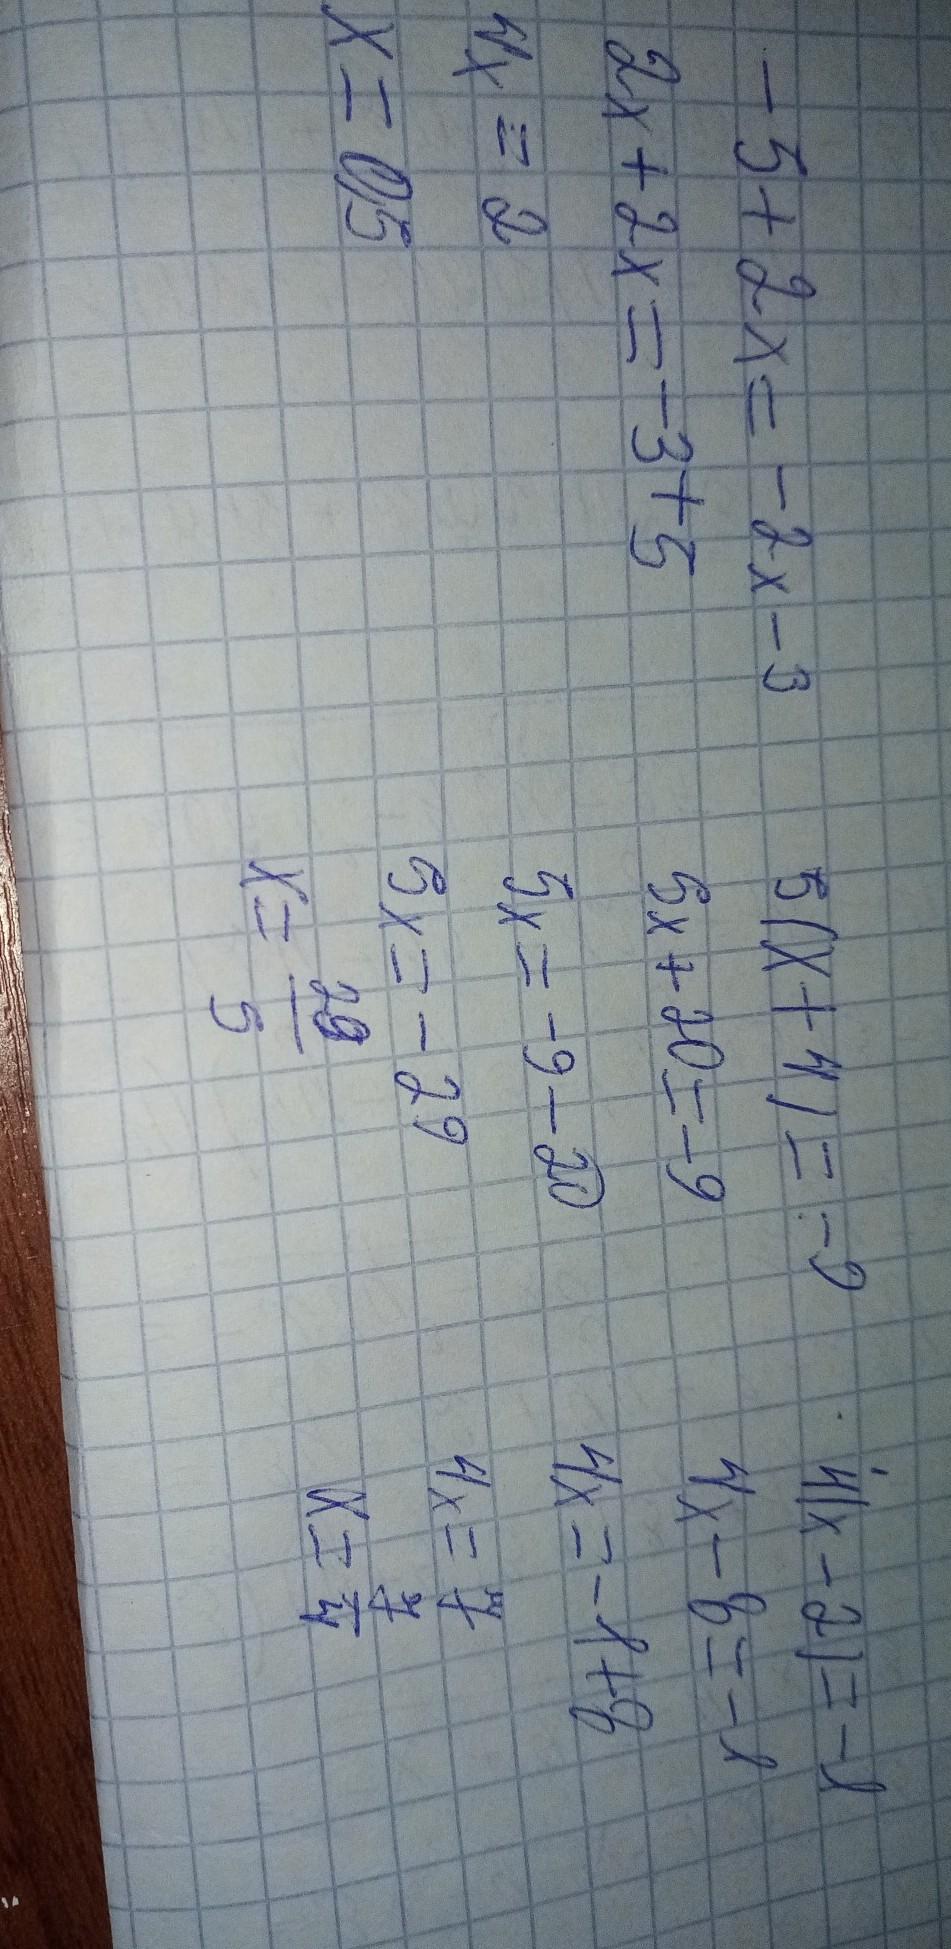 -5+2x=-2x-3
2x+2x=-3+5
4x=2
x=0,5
5(x+4)=-9
5x+20=-9
5x=-9-20
5x=-29
x=29/5
4(x-2)=-1
4x-8=-1
4x=-1+8
4x=7
x=7/4